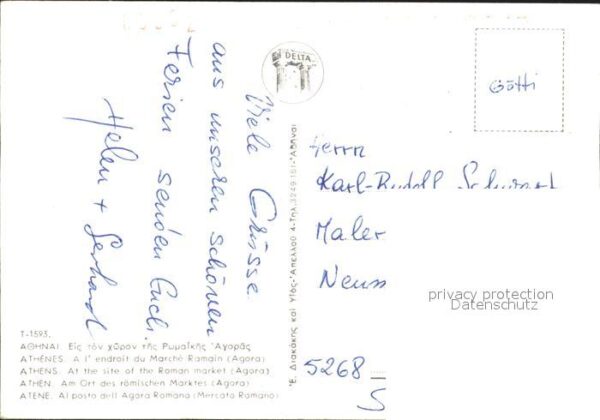 Viele Grüsse
aus unseren schönen
Ferien senden Euch
Helen + Gerhard
DELTA
Götti
Herrn
Karl-Rudolf
Maler
5268
privacy protection
Datenschutz
T-1593.
ΑΘΗΝΑΙ. Εἰς τὸν χῶρον τῆς Ρωμαϊκῆς Ἀγορᾶς
ATHÈNES. A l' endroit du Marché Romain (Agora)
ATHENS. At the site of the Roman market (Agora)
ATHEN. Am Ort des römischen Marktes (Agora)
ATENE. Al posto dell Agora Romana (Mercato Romano)
Ἐ. Διακάκης καὶ Υἱός-Ἀπελλοῦ 4-Τηλ. 3249181-Ἀθῆναι